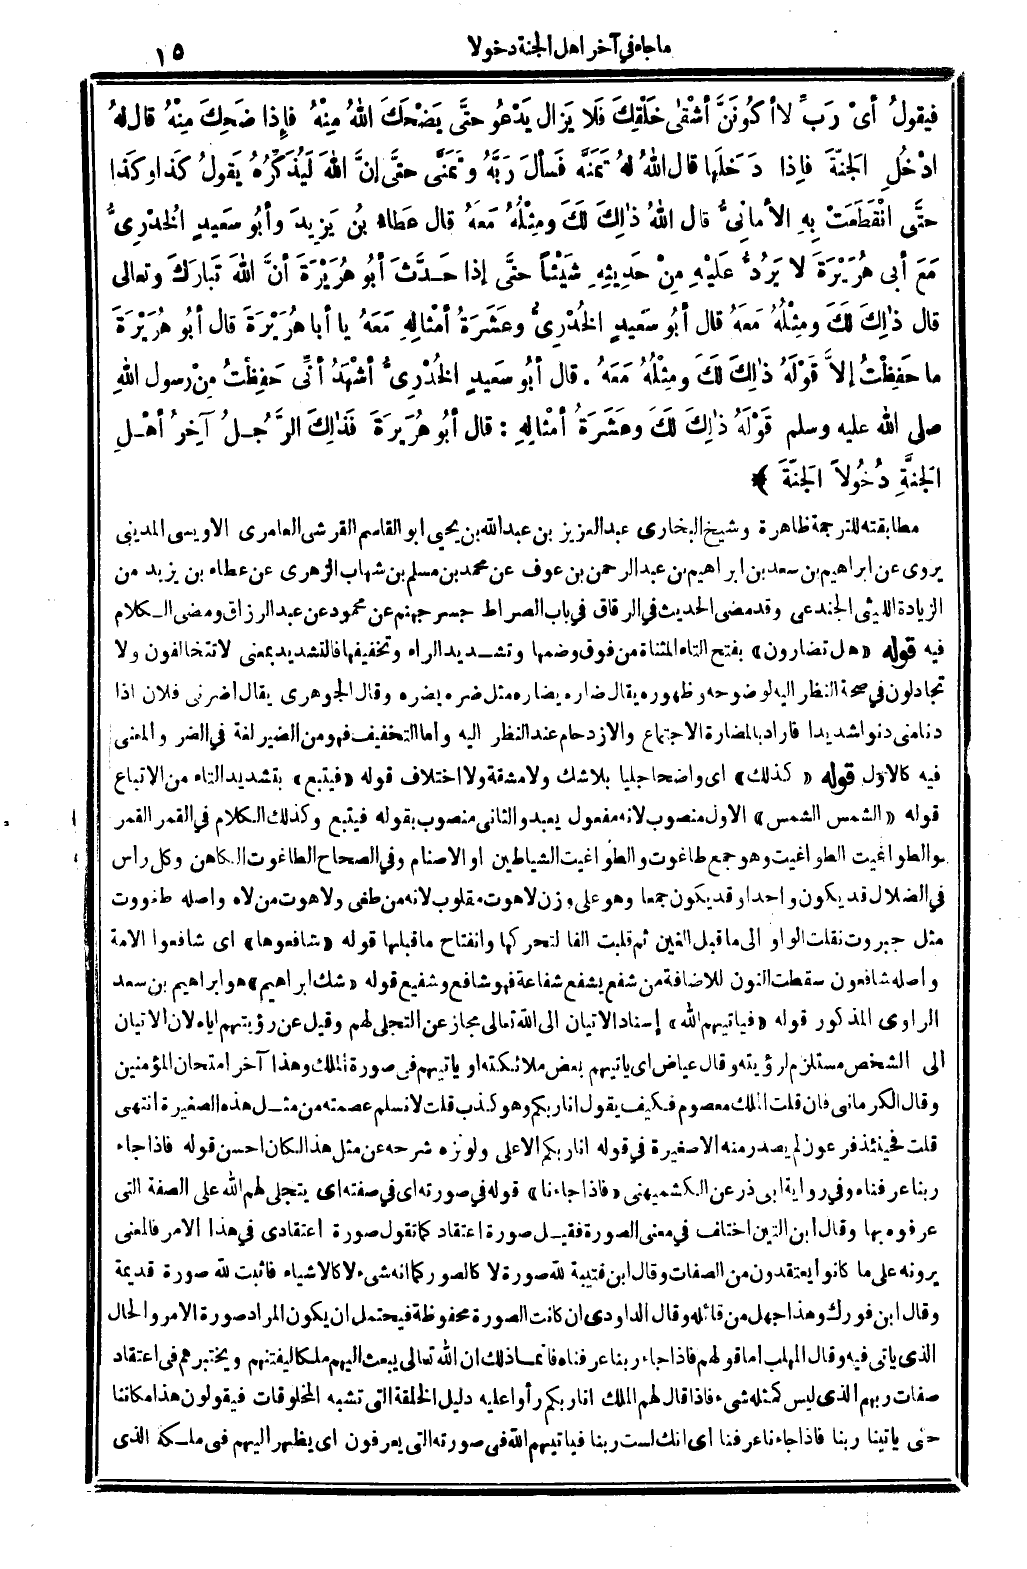 ماجاء في آخر اهل الجنة دخولا
١٥
فيقولُ أىْ رَبِّ لاأ كُونَنَّ أشْقٰى خَلْقِكَ فَلا يَزال يَدْعُو حتَّى يَضْحَكَ اللهُ مِنْهُ فإذا ضَحِكَ مِنْهُ قال لهُ
ادْخُلِ الجَنّةَ فإذا دَخَلَها قال اللهُ لهُ تَمَنَّه فَسألَ رَبَّهُ وتَمَنَّى حتَّى إنَّ اللهَ لَيُذَكِّرُهُ يَقولُ كَذا وكَذا
حتَّى انْقَطَعَتْ بِهِ الأمانىُّ قال اللهُ ذٰلِكَ لَكَ ومِثْلُهُ مَعَهُ قال عَطاء بنُ يَزِيدَ وأبُو سَعيدٍ الخُدْرِىُّ
مَعَ أبى هُرَيْرَةَ لا يَرُدُّ عَلَيْهِ مِنْ حَدِيثِهِ شَيْئاً حتَّى إذا حَدَّثَ أبُو هُرَيْرَةَ أنَّ اللهَ تَبارَكَ وتعالى
قال ذٰلِكَ لَكَ ومِثْلُهُ مَعَهُ قال أبُو سَعيدٍ الخُدْرِىُّ وعَشَرَةُ أمْثالِهِ مَعَهُ يا أبا هُرَيْرَةَ قال أبُو هُرَيْرَةَ
ما حَفِظْتُ إلاَّ قَوْلَهُ ذٰلِكَ لَكَ ومِثْلُهُ مَعَهُ . قال أبُو سَعيدٍ الخُدْرِىُّ أشْهَدُ أنِّى حَفِظْتُ مِنْ رسول اللهِ
صلى الله عليه وسلم قَوْلَهُ ذٰلِكَ لَكَ وعَشَرَةُ أمْثالِهِ : قال أبُو هُرَيرَةَ فَذٰلِكَ الرَّجُلُ آخِرُ أهْلِ
الجَنَّةِ دُخُولاً الجَنّةَ ﴾
مطابقته للترجمة ظاهرة وشيخ البخارى عبدالعزيز بن عبدالله بن يحيى ابو القاسم القرشى العامرى الاويسى المدينى
يروى عن ابراهيم بن سعد بن ابراهيم بن عبدالرحمن بن عوف عن محمد بن مسلم بن شهاب الزهرى عن عطاء بن يزيد من
الزيادة الليثى الجندعى وقد مضى الحديث في الرقاق في باب الصراط جسر جهنم عن محمود عن عبدالرزاق ومضى الكلام
فيه قوله «هل تضارون» بفتح التاء المثناة من فوق وضمها وتشديد الراء وتخفيفها فالتشديد بمعنى لاتتخالفون ولا
تجادلون في صحة النظر اليه لوضوحه وظهوره يقال ضاره يضاره مثل ضره يضره وقال الجوهرى يقال اضرنى فلان اذا
دنا منى دنوا شديدا فاراد بالمضارة الاجتماع والازدحام عند النظر اليه وأما التخفيف فهو من الضير لغة في الضر والمعنى
فيه كالاول قوله «كذلك» اى واضحا جليا بلاشك ولا مشقة ولا اختلاف قوله «فيتبع» بتشديد التاء من الاتباع
قوله «الشمس الشمس» الاول منصوب لانه مفعول يعبد والثانى منصوب بقوله فيتبع وكذلك الكلام في القمر القمر
والطواغيت الطواغيت وهو جمع طاغوت والطواغيت الشياطين او الاصنام وفي الصحاح الطاغوت الكاهن وكل راس
في الضلال قد يكون واحدا وقد يكون جمعا وهو على وزن لاهوت مقلوب لانه من طغى ولاهوت من لاه واصله طغووت
مثل جبروت نقلت الواو الى ما قبل الغين ثم قلبت الفا لتحركها وانفتاح ماقبلها قوله «شافعوها» اى شافعوا الامة
واصله شافعون سقطت النون للاضافة من شفع يشفع شفاعة فهو شافع وشفيع قوله «شك ابراهيم» هو ابراهيم بن سعد
الراوى المذكور قوله «فياتيهم الله» إسناد الاتيان الى الله تعالى مجاز عن التجلى لهم وقيل عن رؤيتهم اياه لان الاتيان
الى الشخص مستلزم لرؤيته وقال عياض اى ياتيهم بعض ملائكته او ياتيهم في صورة الملك وهذا آخر امتحان المؤمنين
وقال الكرمانى فان قلت الملك معصوم فكيف يقول انا ربكم وهو كذب قلت لانسلم عصمته من مثل هذه الصغيرة انتهى
قلت فحينئذ فرعون لم يصدر منه الا صغيرة في قوله انا ربكم الاعلى ولو نزه شرحه عن مثل هذا لكان احسن قوله فاذا جاء
ربنا عرفناه وفي رواية ابى ذر عن الكشميهنى «فاذا جاءنا» قوله في صورته اى في صفته اى يتجلى لهم الله على الصفة التى
عرفوه بها وقال ابن التين اختلف في معنى الصورة فقيل صورة اعتقاد كما تقول صورة اعتقادى في هذا الامر فالمعنى
يرونه على ما كانوا يعتقدون من الصفات وقال ابن قتيبة لله صورة لا كالصور كما انه شىء لا كالاشياء فاثبت لله صورة قديمة
وقال ابن فورك وهذا جهل من قائله وقال الداودى ان كانت الصورة محفوظة فيحتمل ان يكون المراد صورة الامر والحال
الذى ياتى فيه وقال المهلب اما قولهم فاذا جاء ربنا عرفناه فانما ذلك ان الله تعالى يبعث اليهم ملكا ليفتنهم ويختبرهم في اعتقاد
صفات ربهم الذى ليس كمثله شىء فاذا قال لهم الملك انا ربكم رأوا عليه دليل الخلقة التى تشبه المخلوقات فيقولون هذا مكاننا
حتى ياتينا ربنا فاذا جاءنا عرفنا اى انك لست ربنا فياتيهم الله في صورته التى يعرفون اى يظهر اليهم في ملكه الذى